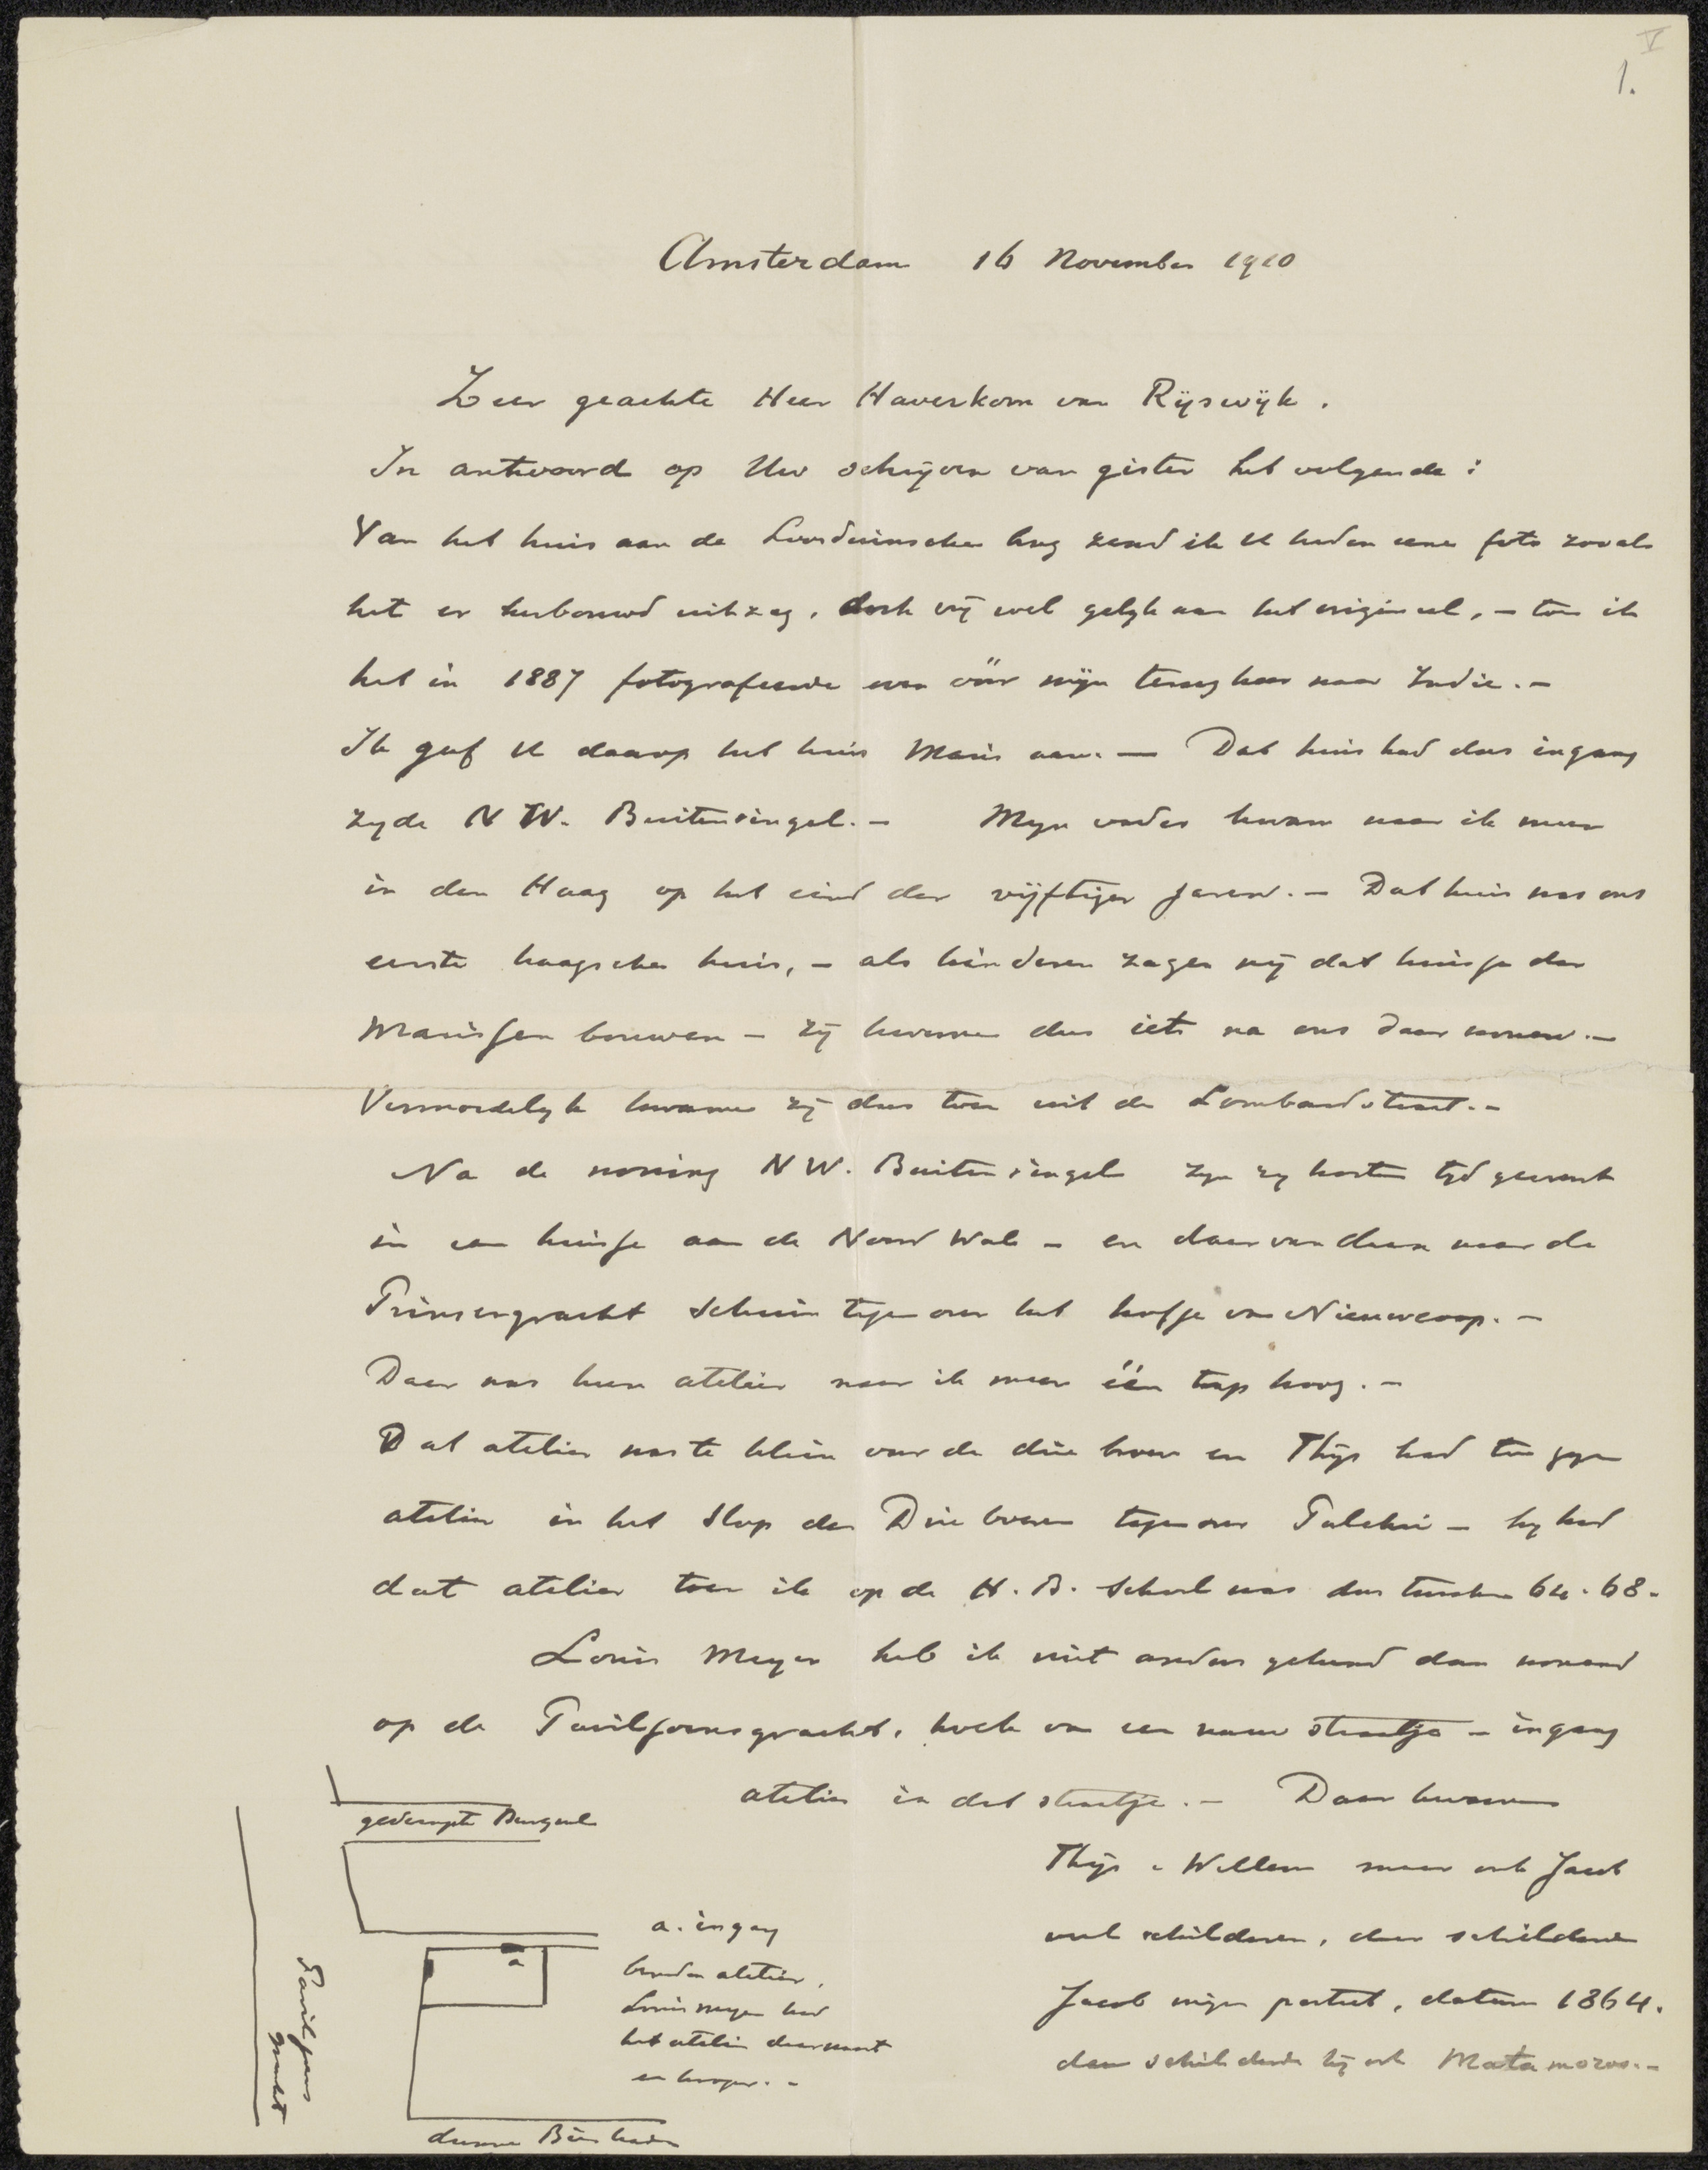 V
1.
Amsterdam 16 November 1910
Zeer geachte Heer Haverkorn van Rijswijk.
In antwoord op Uw schrijven van gister het volgende:
Van het huis aan de Loosduinsche brug zend ik U heden eene foto zooals
het er verbouwd uitzag, doch vrij wel gelijk aan het origineel, – toen ik
het in 1887 fotografeerde even vóór mijn terugkeer naar Indië. –
Ik gaf U daarop het huis Maris aan. — Dat huis had dus ingang
zijde N W. Buitensingel. – Mijn vader kwam naar ik meen
in den Haag op het eind der vijftiger jaren. – Dat huis was ons
eerste haagsche huis, – als kinderen zagen wij dat huisje der
Marissen bouwen – zij kwamen dus iets na ons daar wonen. –
Vermoedelijk kwamen zij dus toen uit de Lombardstraat. –
Na de woning N W. Buitensingel zijn zij korten tijd geweest
in een huisje aan de Noord Wal – en daar vandaan naar de
Prinsengracht schuin tegenover het hofje van Nieuwcoop. –
Daar was hun atelier naar ik meen één trap hoog. –
Dat atelier was te klein voor de drie broers en Thijs had toen zijn
atelier in het Slop der Drie boeren tegenover Pulchri – hij had
dat atelier toen ik op de H. B. School was dus tusschen 64-68.
Louis Meyer heb ik niet anders gekend dan wonend
op de Paviljoensgracht, hoek van een nauw straatje – ingang
atelier in dat straatje. – Daar kwamen
Thijs & Willem maar ook Jacob
veel schilderen, daar schilderde
Jacob mijn portret, datum 1864.
daar schilderde hij ook Matamoros. –
gedempte Burgwal
a. ingang
beneden atelier,
Louis Meyer had
het atelier daarnaast
en hooger. –
a
Paviljoens
gracht
dunne Bierkade